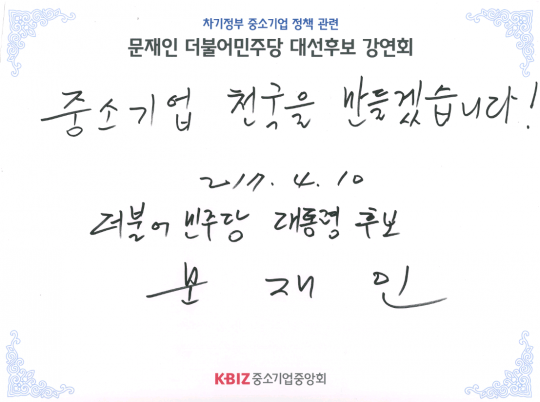 차기정부 중소기업 정책 관련
문재인 더불어민주당 대선후보 강연회
중소기업 천국을 만들겠습니다!
2017. 4. 10
더불어 민주당 대통령 후보
문 재 인
K·BIZ 중소기업중앙회